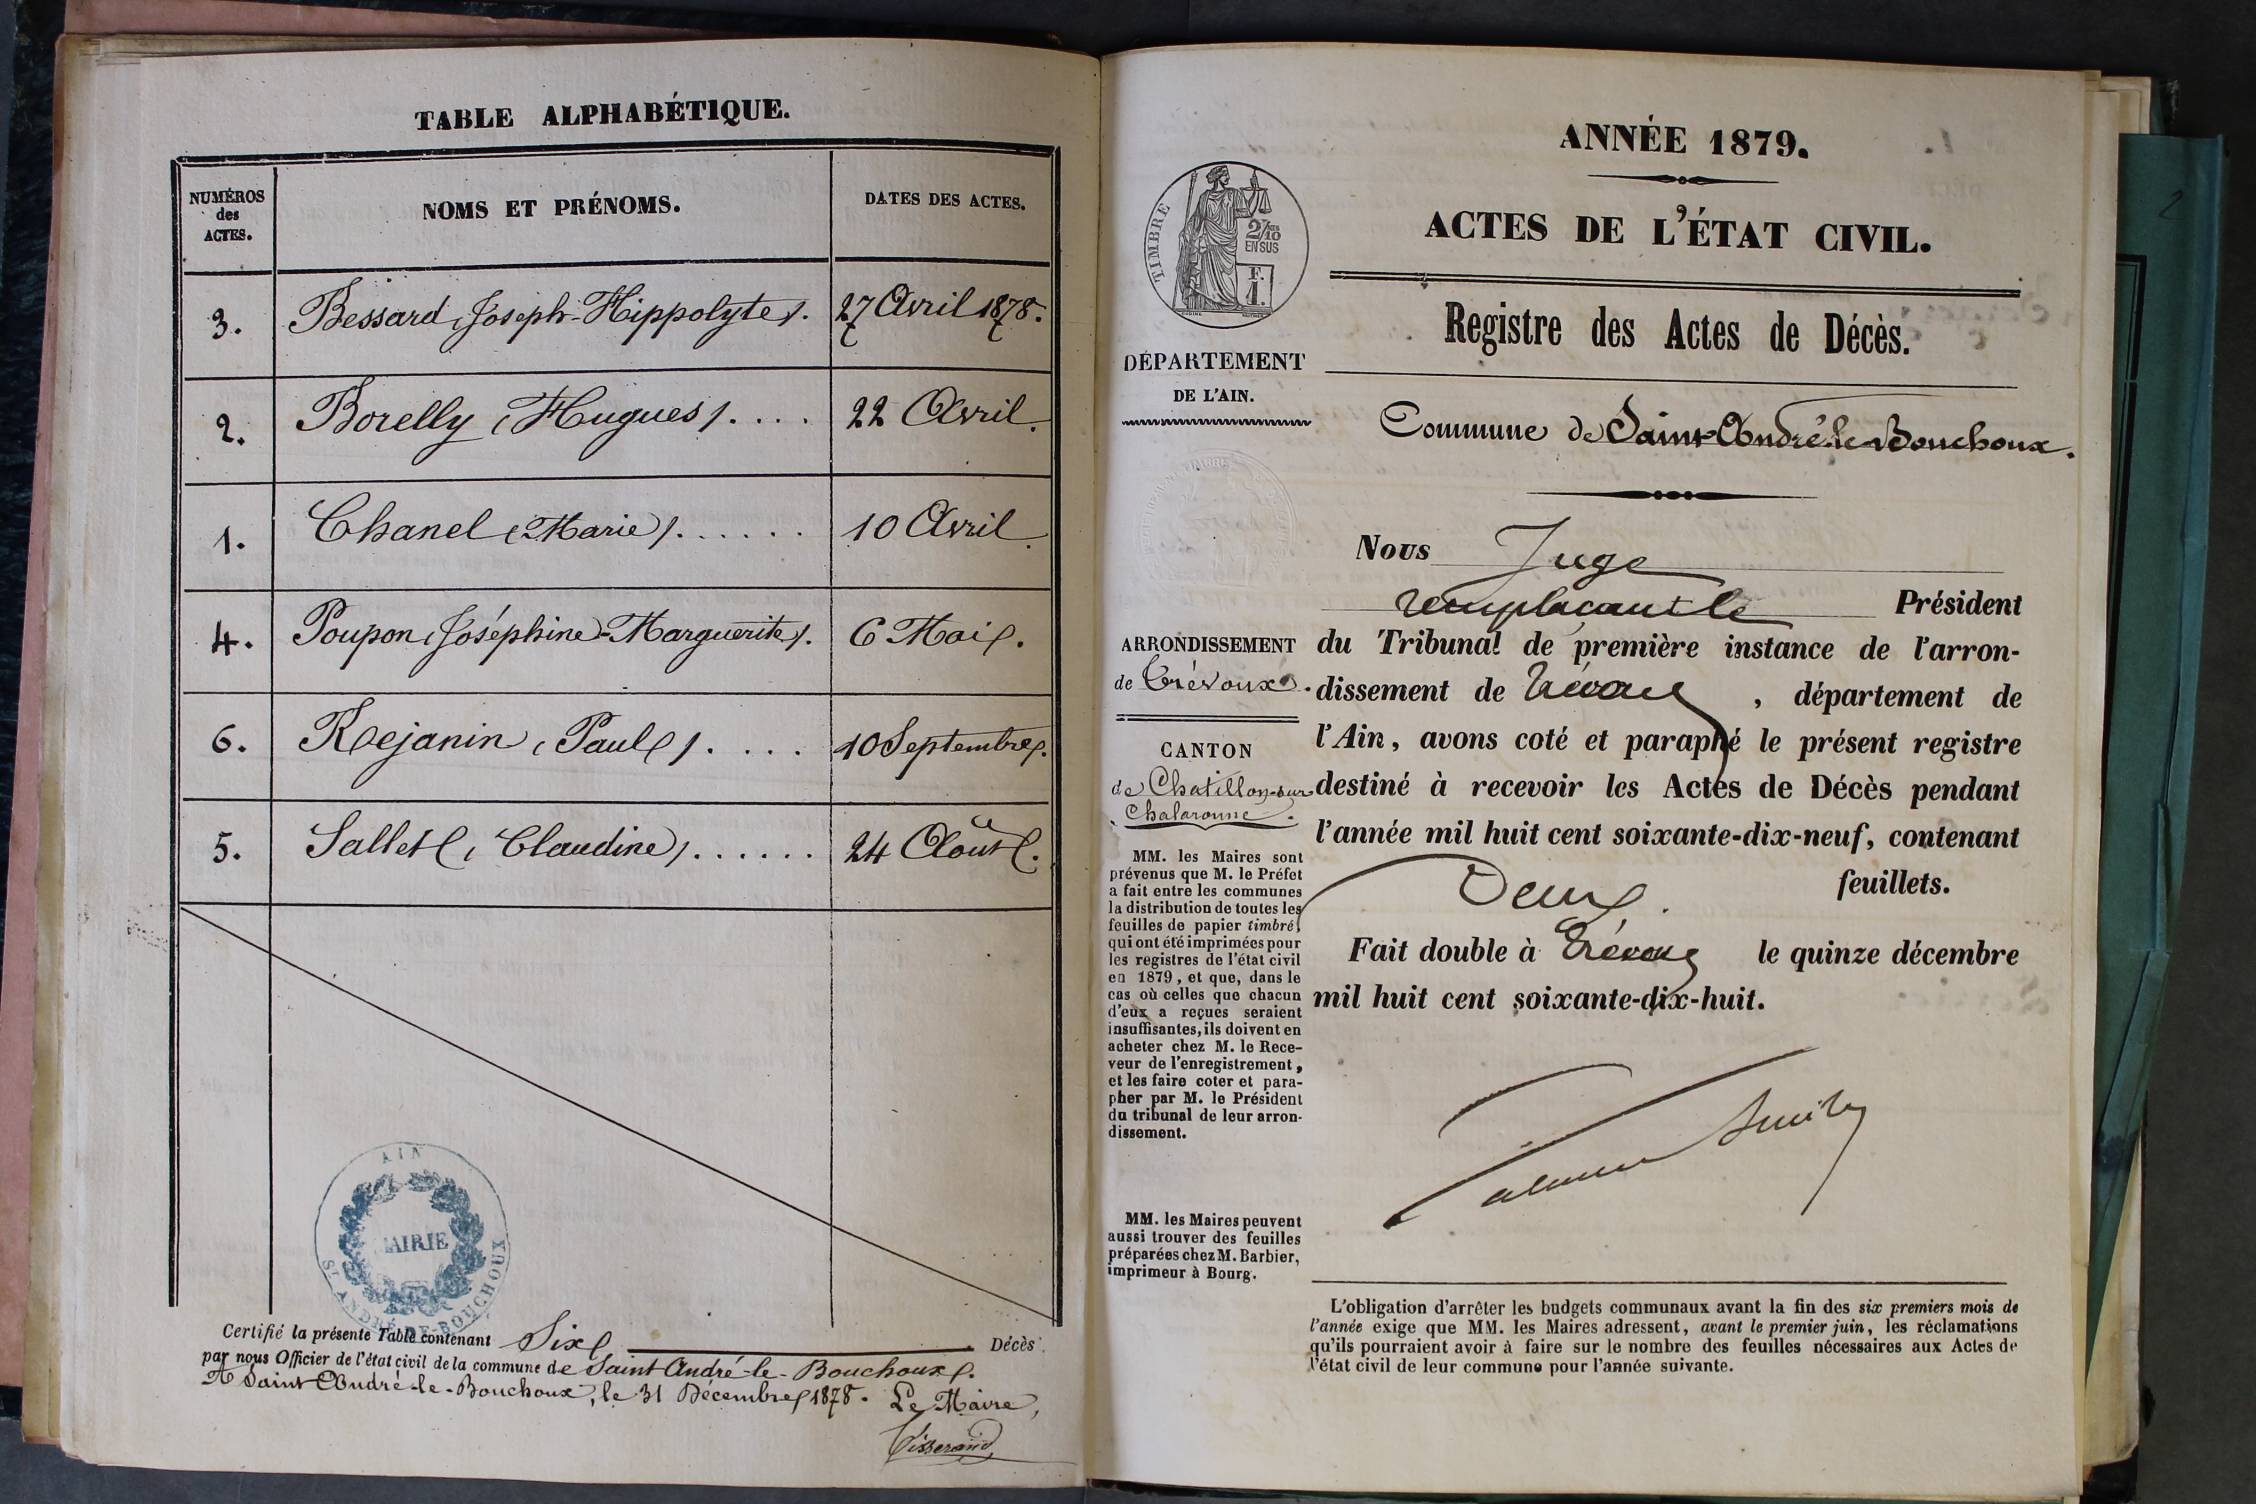 TABLE ALPHABÉTIQUE.
NUMÉROS des ACTES. NOMS ET PRÉNOMS. DATES DES ACTES.
3. Bessard (Joseph-Hippolyte). 27 Avril 1878.
2. Borelly (Hugues). . . . . 22 Avril.
1. Chanel (Marie). . . . . . 10 Avril.
4. Poupon (Joséphine-Marguerite). 6 Mai.
6. Rejanin (Paul). . . . . 10 Septembre.
5. Sallet (Claudine). . . . . . 24 Août.
AIN
MAIRIE
ST ANDRÉ-LE-BOUCHOUX
Certifié la présente Table contenant Six Décès
par nous Officier de l'état civil de la commune de Saint André-le-Bouchoux.
A Saint André-le-Bouchoux, le 31 Décembre 1878. Le Maire,
Tisserand
ANNÉE 1879.
ACTES DE L'ÉTAT CIVIL.
Registre des Actes de Décès.
Commune de Saint-André-le-Bouchoux.
TIMBRE
2/10
EN SUS
F.
1.
DÉPARTEMENT
DE L'AIN.
ARRONDISSEMENT
de Trévoux.
CANTON
de Chatillon-sur
Chalaronne.
MM. les Maires sont
prévenus que M. le Préfet
a fait entre les communes
la distribution de toutes les
feuilles de papier timbré,
qui ont été imprimées pour
les registres de l'état civil
en 1879, et que, dans le
cas où celles que chacun
d'eux a reçues seraient
insuffisantes, ils doivent en
acheter chez M. le Rece-
veur de l'enregistrement,
et les faire coter et para-
pher par M. le Président
du tribunal de leur arron-
dissement.
MM. les Maires peuvent
aussi trouver des feuilles
préparées chez M. Barbier,
imprimeur à Bourg.
Nous Juge
remplaçant le Président
du Tribunal de première instance de l'arron-
dissement de Trévoux, département de
l'Ain, avons coté et paraphé le présent registre
destiné à recevoir les Actes de Décès pendant
l'année mil huit cent soixante-dix-neuf, contenant
Deux feuillets.
Fait double à Trévoux le quinze décembre
mil huit cent soixante-dix-huit.
L'obligation d'arrêter les budgets communaux avant la fin des six premiers mois de
l'année exige que MM. les Maires adressent, avant le premier juin, les réclamations
qu'ils pourraient avoir à faire sur le nombre des feuilles nécessaires aux Actes de
l'état civil de leur commune pour l'année suivante.
2